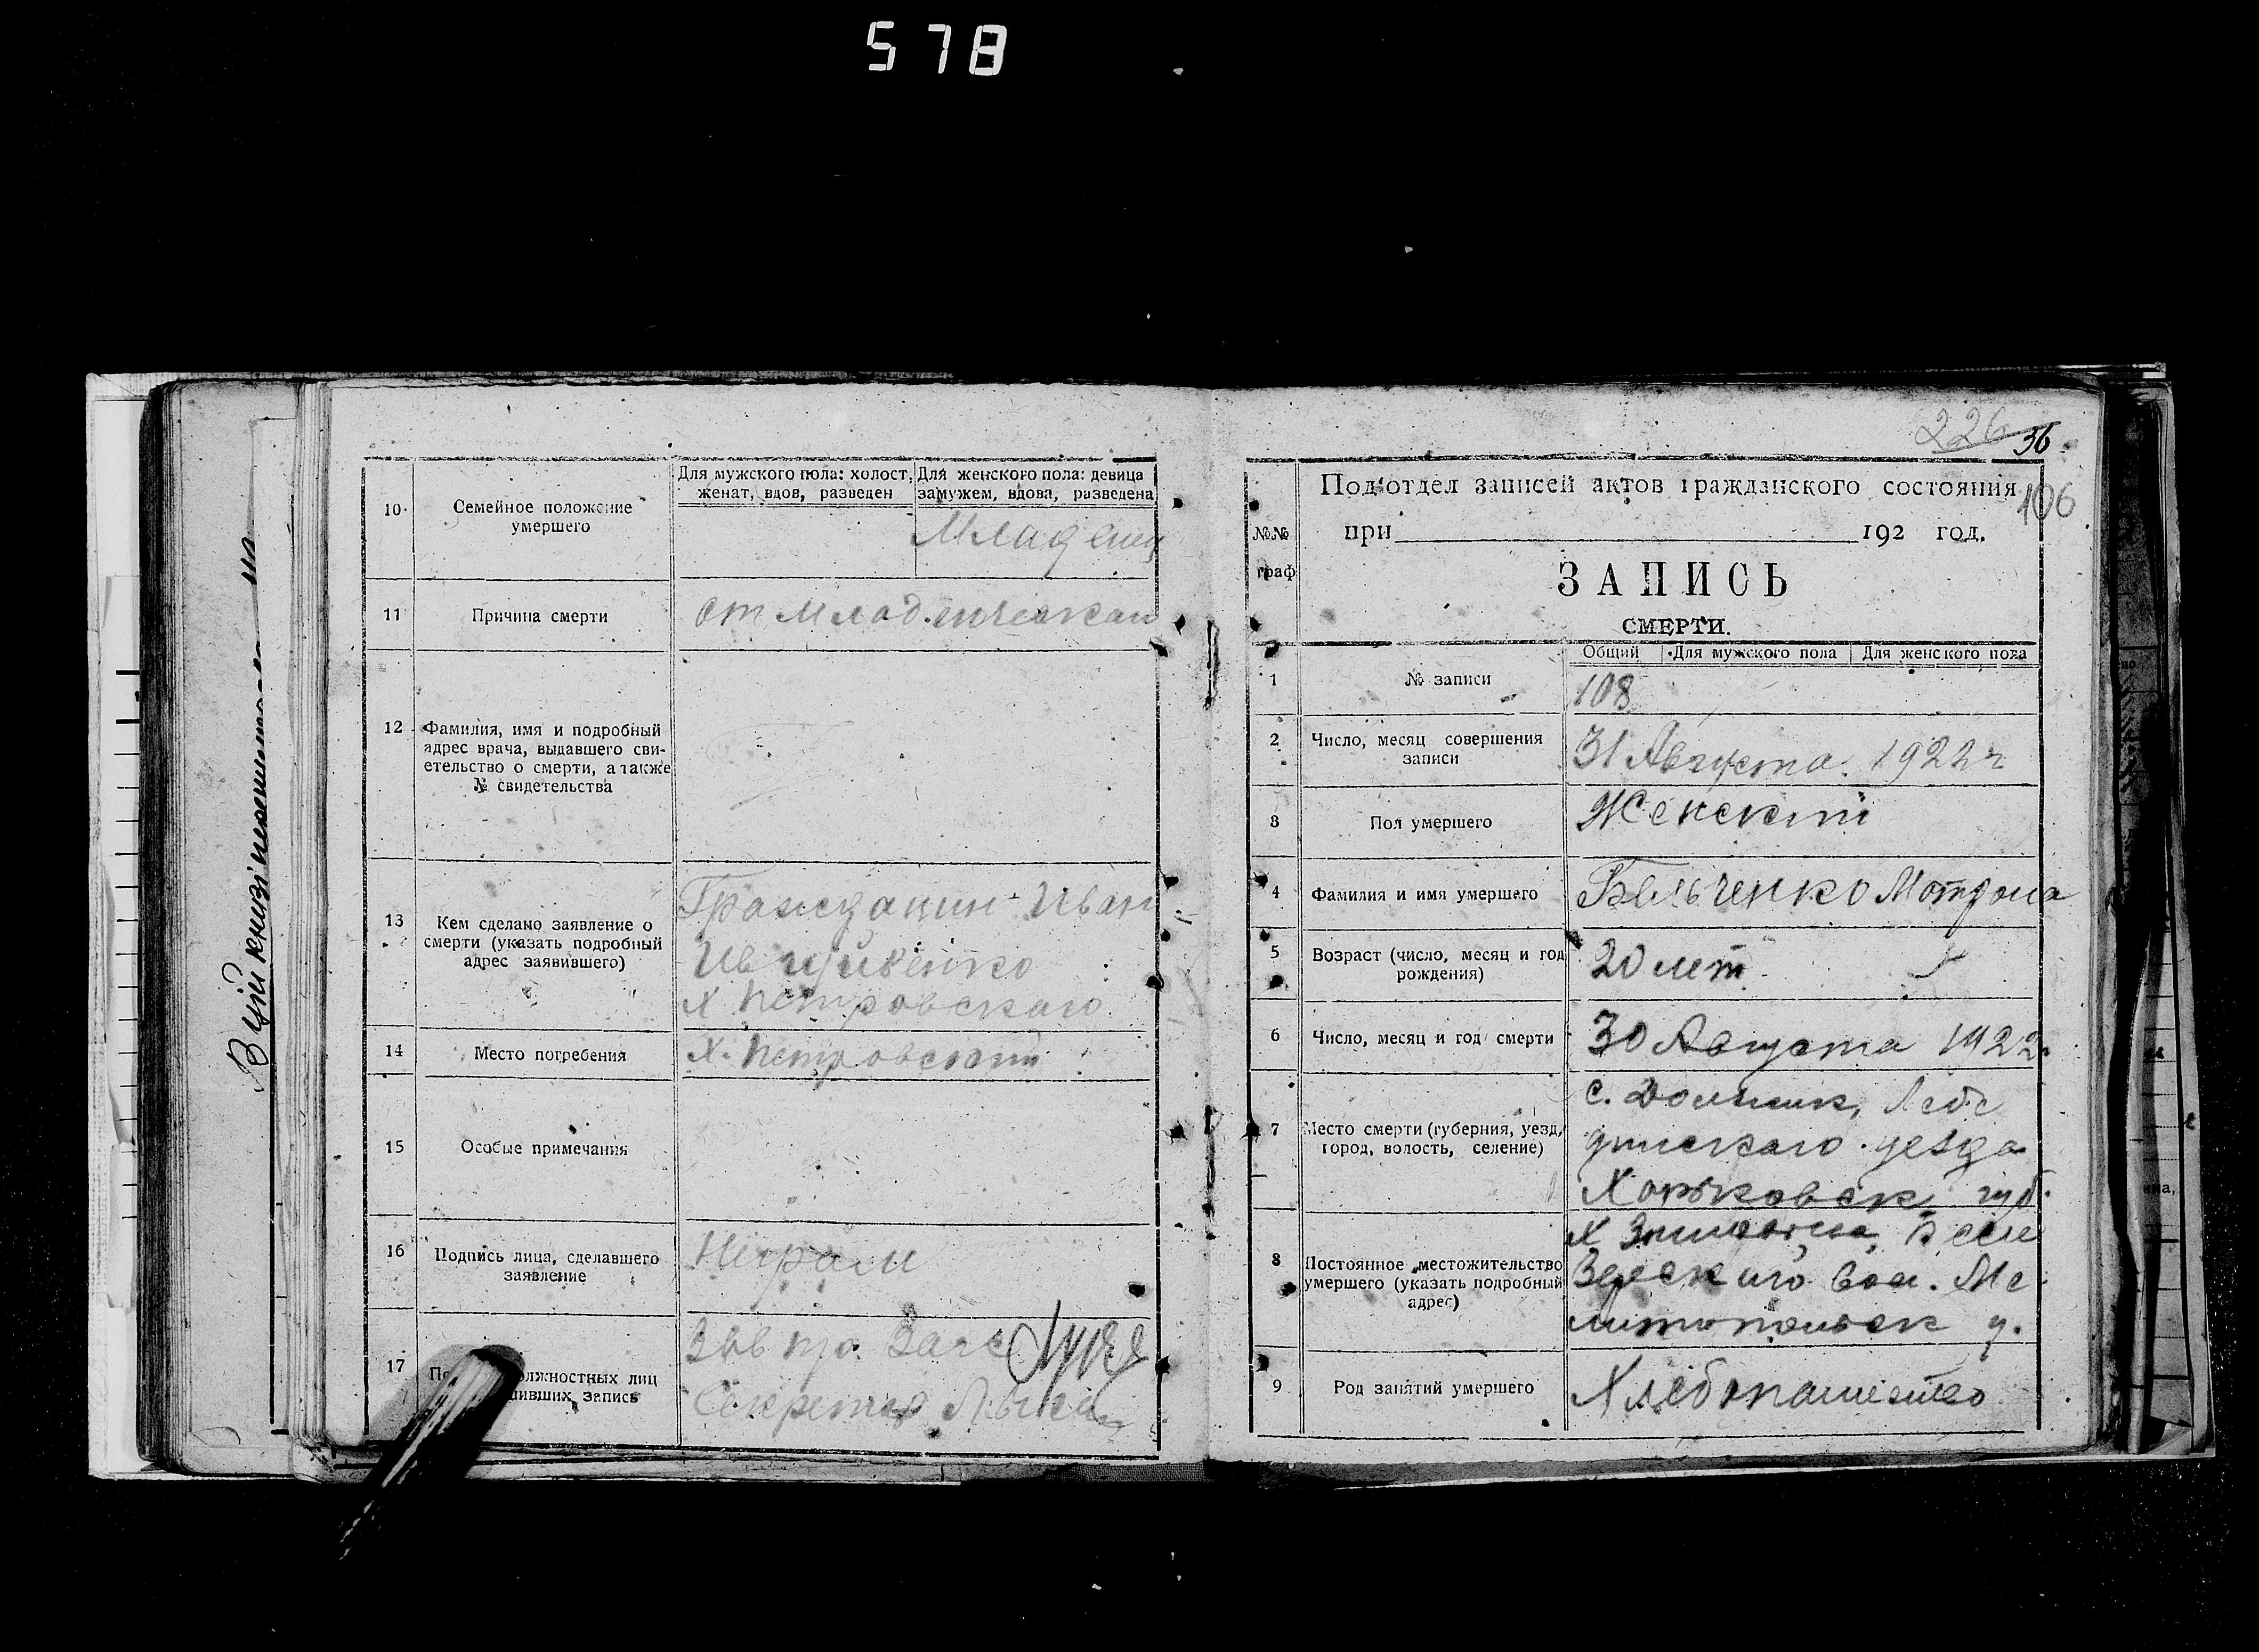 578
10 Семейное положение умершего
Для мужского пола: холост, женат, вдов, разведен
Для женского пола: девица замужем, вдова, разведена
Младенец
11 Причина смерти
от младенческой
12 Фамилия, имя и подробный
адрес врача, выдавшего сви-
етельство о смерти, а также
№ свидетельства
13 Кем сделано заявление о
смерти (указать подробный
адрес заявившего)
Гражданин Иван
х Петровскаго
14 Место погребения
х. Петровский
15 Особые примечания
16 Подпись лица, сделавшего
заявление
Неграм
17
олжностных лиц
шивших запись
Зав
Секретар
В цій книзі
226 36
106
Подотдел записей актов гражданского состояния
№№
граф
при 192 год.
ЗАПИСЬ
СМЕРТИ.
Общий Для мужского пола Для женского пола
1 № записи
108
2 Число, месяц совершения
записи
31 Августа. 1922 г
3 Пол умершего
Женский
4 Фамилия и имя умершего
Бельченко Мотрона
5 Возраст (число, месяц и год
рождения)
20 лет
6 Число, месяц и год смерти
30 Августа 1922
7 Место смерти (губерния, уезд,
город, волость, селение)
с. Лебе
динскаго уезда
Харьковск губ.
8 Постоянное местожительство
умершего (указать подробный
адрес)
вол. Ме
литопольск у.
9 Род занятий умершего
Хлебопашество